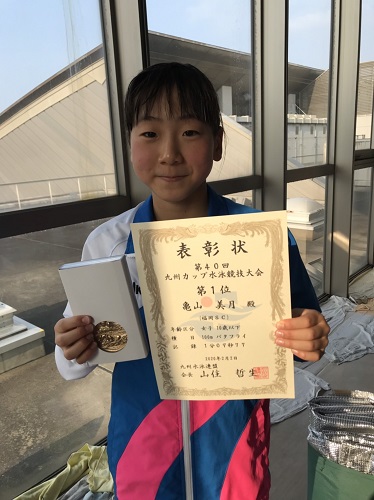 表彰状
第40回
九州カップ水泳競技大会
第1位
亀山 美月 殿
(福岡SC)
年齢区分 女子 10歳以下
種目 100m バタフライ
記録 1分09秒97
2020年2月2日
九州水泳連盟
会長 山住 哲生